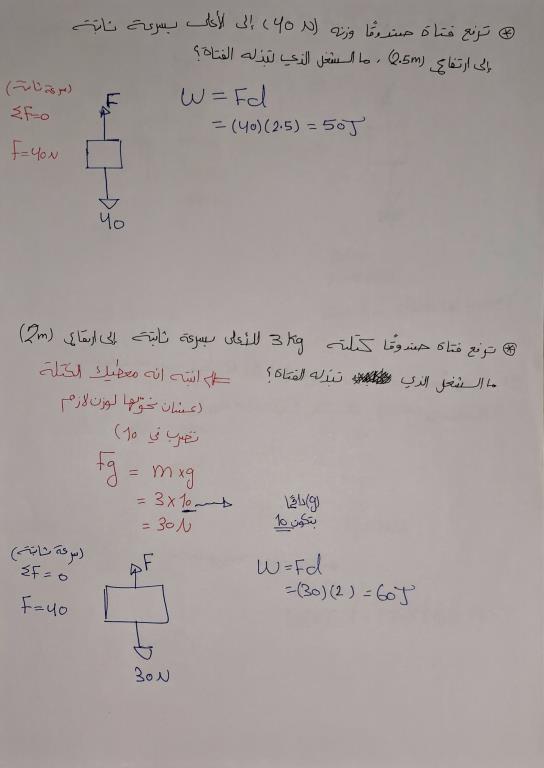 * ترفع فتاة صندوقًا وزنه (40N) إلى الأعلى بسرعة ثابتة
إلى ارتفاع (2.5m) ، ما الشغل الذي تبذله الفتاة؟
(سرعة ثابتة)
ΣF=0
F=40N
F
40
W = Fd
= (40)(2.5) = 50J
* ترفع فتاة صندوقًا كتلته 3kg للأعلى بسرعة ثابتة إلى ارتفاع (2m)
ما الشغل الذي تبذله الفتاة؟
انتبه انه معطيك الكتلة
(عشان نحولها لوزن لازم
نضرب في 10)
Fg = m×g
= 3×10
= 30N
(g) دائمًا
بتكون 10
(سرعة ثابتة)
ΣF = 0
F=40
F
30N
W=Fd
=(30)(2) = 60J